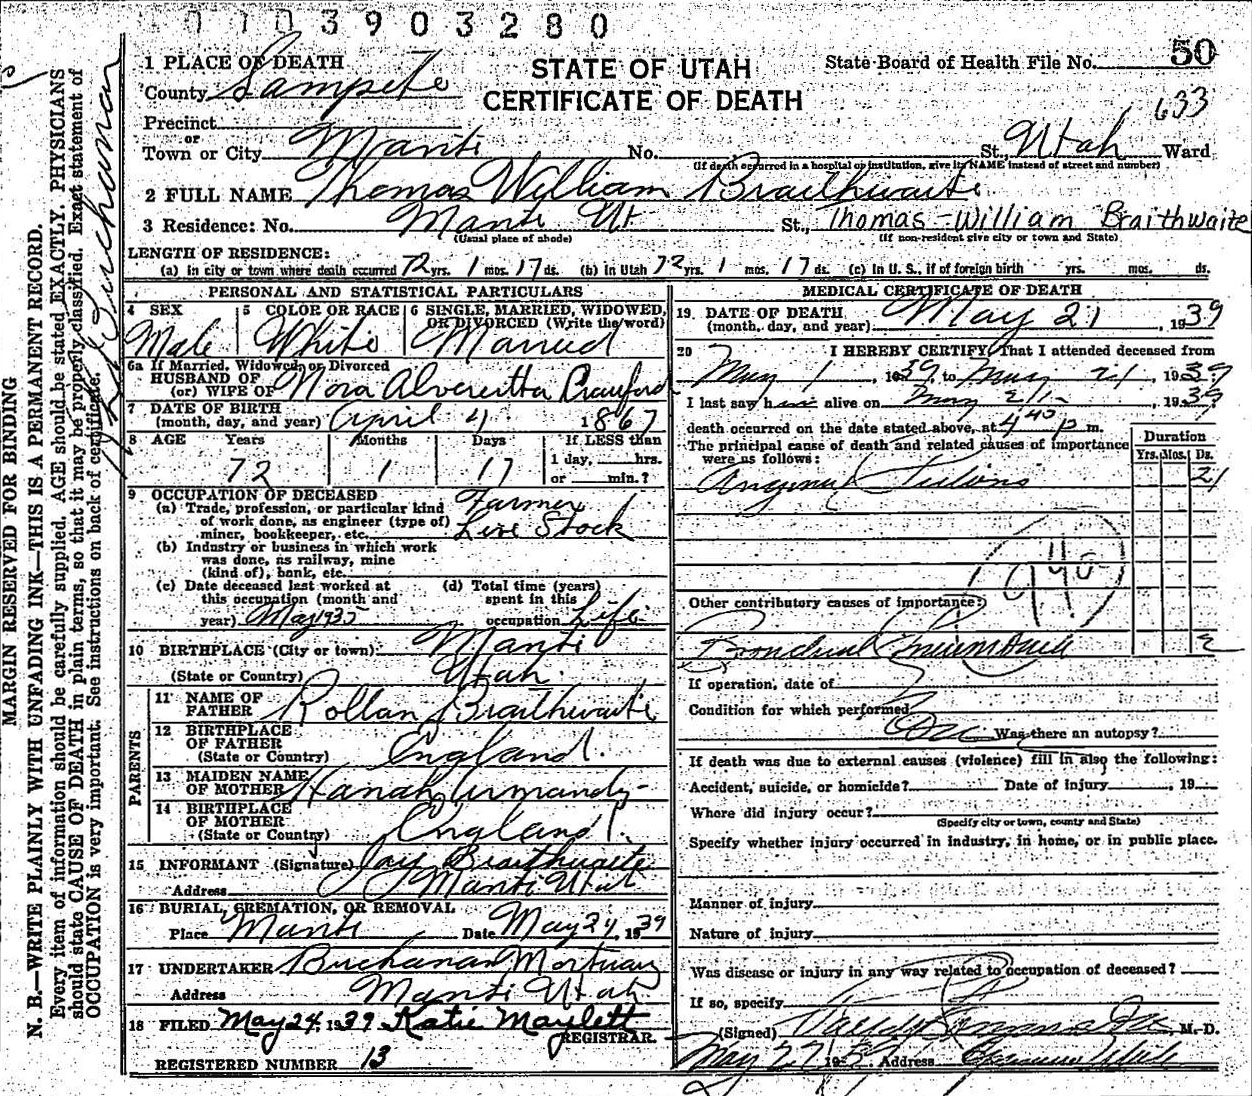 0 1 0 3 9 0 3 2 8 0
STATE OF UTAH
CERTIFICATE OF DEATH
State Board of Health File No. 50
633
1 PLACE OF DEATH
County Sanpete
Precinct
or
Town or City Manti No. St., Utah Ward
(If death occurred in a hospital or institution, give its NAME instead of street and number)
2 FULL NAME Thomas William Braithwaite
3 Residence: No. Manti Ut St., Thomas William Braithwaite
(Usual place of abode) (If non-resident give city or town and State)
LENGTH OF RESIDENCE:
(a) In city or town where death occurred 72 yrs. 1 mos. 17 ds. (b) in Utah 72 yrs. 1 mos. 17 ds. (c) In U. S., if of foreign birth yrs. mos. ds.
PERSONAL AND STATISTICAL PARTICULARS
4 SEX
Male
5 COLOR OR RACE
White
6 SINGLE, MARRIED, WIDOWED,
OR DIVORCED (Write the word)
Married
6a If Married, Widowed, or Divorced
HUSBAND OF
(or) WIFE OF Nora Alveretta Crawford
7 DATE OF BIRTH
(month, day, and year) April 4 1867
8 AGE Years Months Days If LESS than
1 day, hrs.
or min.?
72 1 17
9 OCCUPATION OF DECEASED
(a) Trade, profession, or particular kind
of work done, as engineer (type of)
miner, bookkeeper, etc.
Farmer
Live Stock
(b) Industry or business in which work
was done, as railway, mine
(kind of), bank, etc.
(c) Date deceased last worked at
this occupation (month and
year) May 1935
(d) Total time (years)
spent in this
occupation Life
10 BIRTHPLACE (City or town) Manti
(State or Country) Utah
PARENTS
11 NAME OF
FATHER Rollan Braithwaite
12 BIRTHPLACE
OF FATHER
(State or Country) England
13 MAIDEN NAME
OF MOTHER Hanah Armandy
14 BIRTHPLACE
OF MOTHER
(State or Country) England
15 INFORMANT (Signature) Jay Braithwaite
Address Manti Utah
16 BURIAL, CREMATION, OR REMOVAL
Place Manti Date May 24, 1939
17 UNDERTAKER Buchanan Mortuary
Address Manti Utah
18 FILED May 24, 1939 Katie Maylett
REGISTRAR.
REGISTERED NUMBER 13
MEDICAL CERTIFICATE OF DEATH
19 DATE OF DEATH
(month, day, and year) May 21, 1939
20 I HEREBY CERTIFY, That I attended deceased from
May 1, 1939, to May 21, 1939
I last saw him alive on May 21, 1939
death occurred on the date stated above, at 4:40 p m.
The principal cause of death and related causes of importance
were as follows:
Duration
Yrs. Mos. Ds.
Angina 21
Other contributory causes of importance:
Bronchial Pneumonia 2
If operation, date of
Condition for which performed
Was there an autopsy?
If death was due to external causes (violence) fill in also the following:
Accident, suicide, or homicide? Date of injury , 19
Where did injury occur?
(Specify city or town, county and State)
Specify whether injury occurred in industry, in home, or in public place.
Manner of injury
Nature of injury
Was disease or injury in any way related to occupation of deceased?
If so, specify
(Signed) M. D.
May 19 Address
MARGIN RESERVED FOR BINDING
N. B.—WRITE PLAINLY WITH UNFADING INK—THIS IS A PERMANENT RECORD.
Every item of information should be carefully supplied. AGE should be stated EXACTLY. PHYSICIANS
should state CAUSE OF DEATH in plain terms, so that it may be properly classified. Exact statement of
OCCUPATION is very important. See instructions on back of certificate.
Buchanan